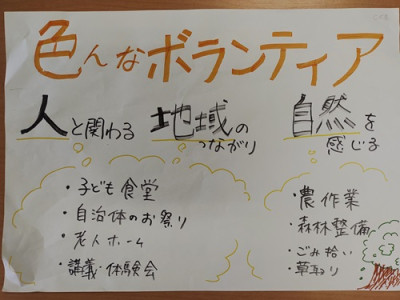 色んなボランティア
人と関わる
地域の
つながり
自然を
感じる
・子ども食堂
・自治体のお祭り
・老人ホーム
・講義・体験会
・農作業
・森林整備
・ごみ拾い
・草取り